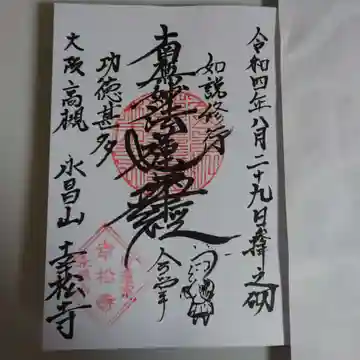 令和四年八月二十九日
如説修行
南無妙法蓮華経
合掌
功徳甚多
大阪高槻 永昌山 幸松寺